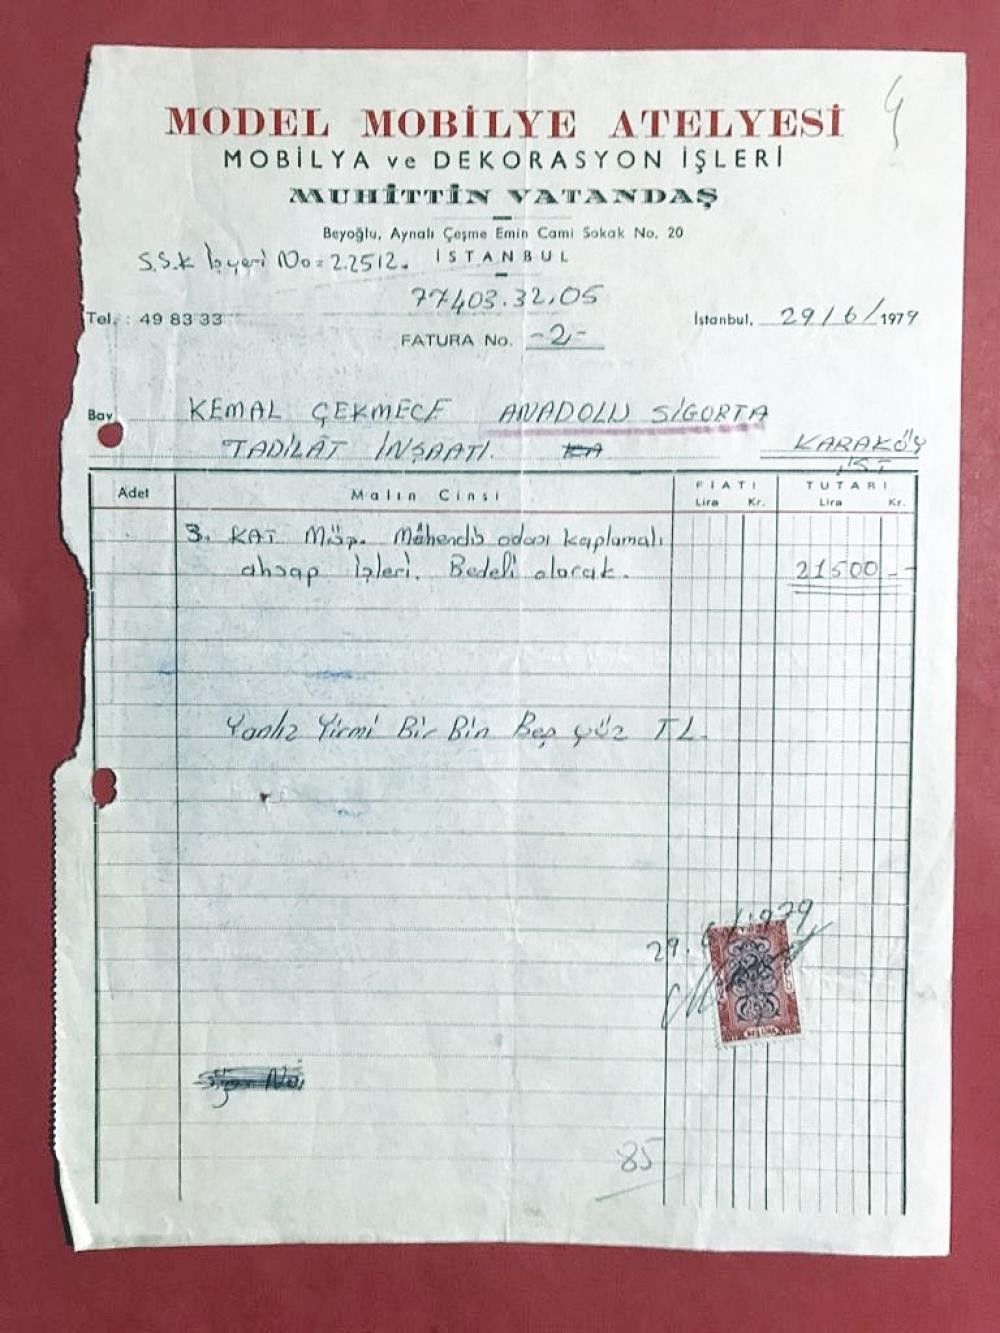 MODEL MOBİLYE ATELYESİ
MOBİLYA ve DEKORASYON İŞLERİ
MUHİTTİN VATANDAŞ
Beyoğlu, Aynalı Çeşme Emin Cami Sokak No. 20
İSTANBUL
S.S.K İşyeri No = 2.2512.
77403.32.05
Tel. : 49 83 33
İstanbul, 29/6/1979
FATURA No. -2-
Bay KEMAL ÇEKMECE ANADOLU SİGORTA
TADİLÂT İNŞAATI. KARAKÖY
İST
Adet Malın Cinsi FIATI TUTARI
Lira Kr. Lira Kr.
3. KAT Müş. Mühendis odası kaplamalı
ahşap işleri. Bedeli olarak. 21500 -
Yanlız Yirmi Bir Bin Beş yüz TL.
29.6.1979
85